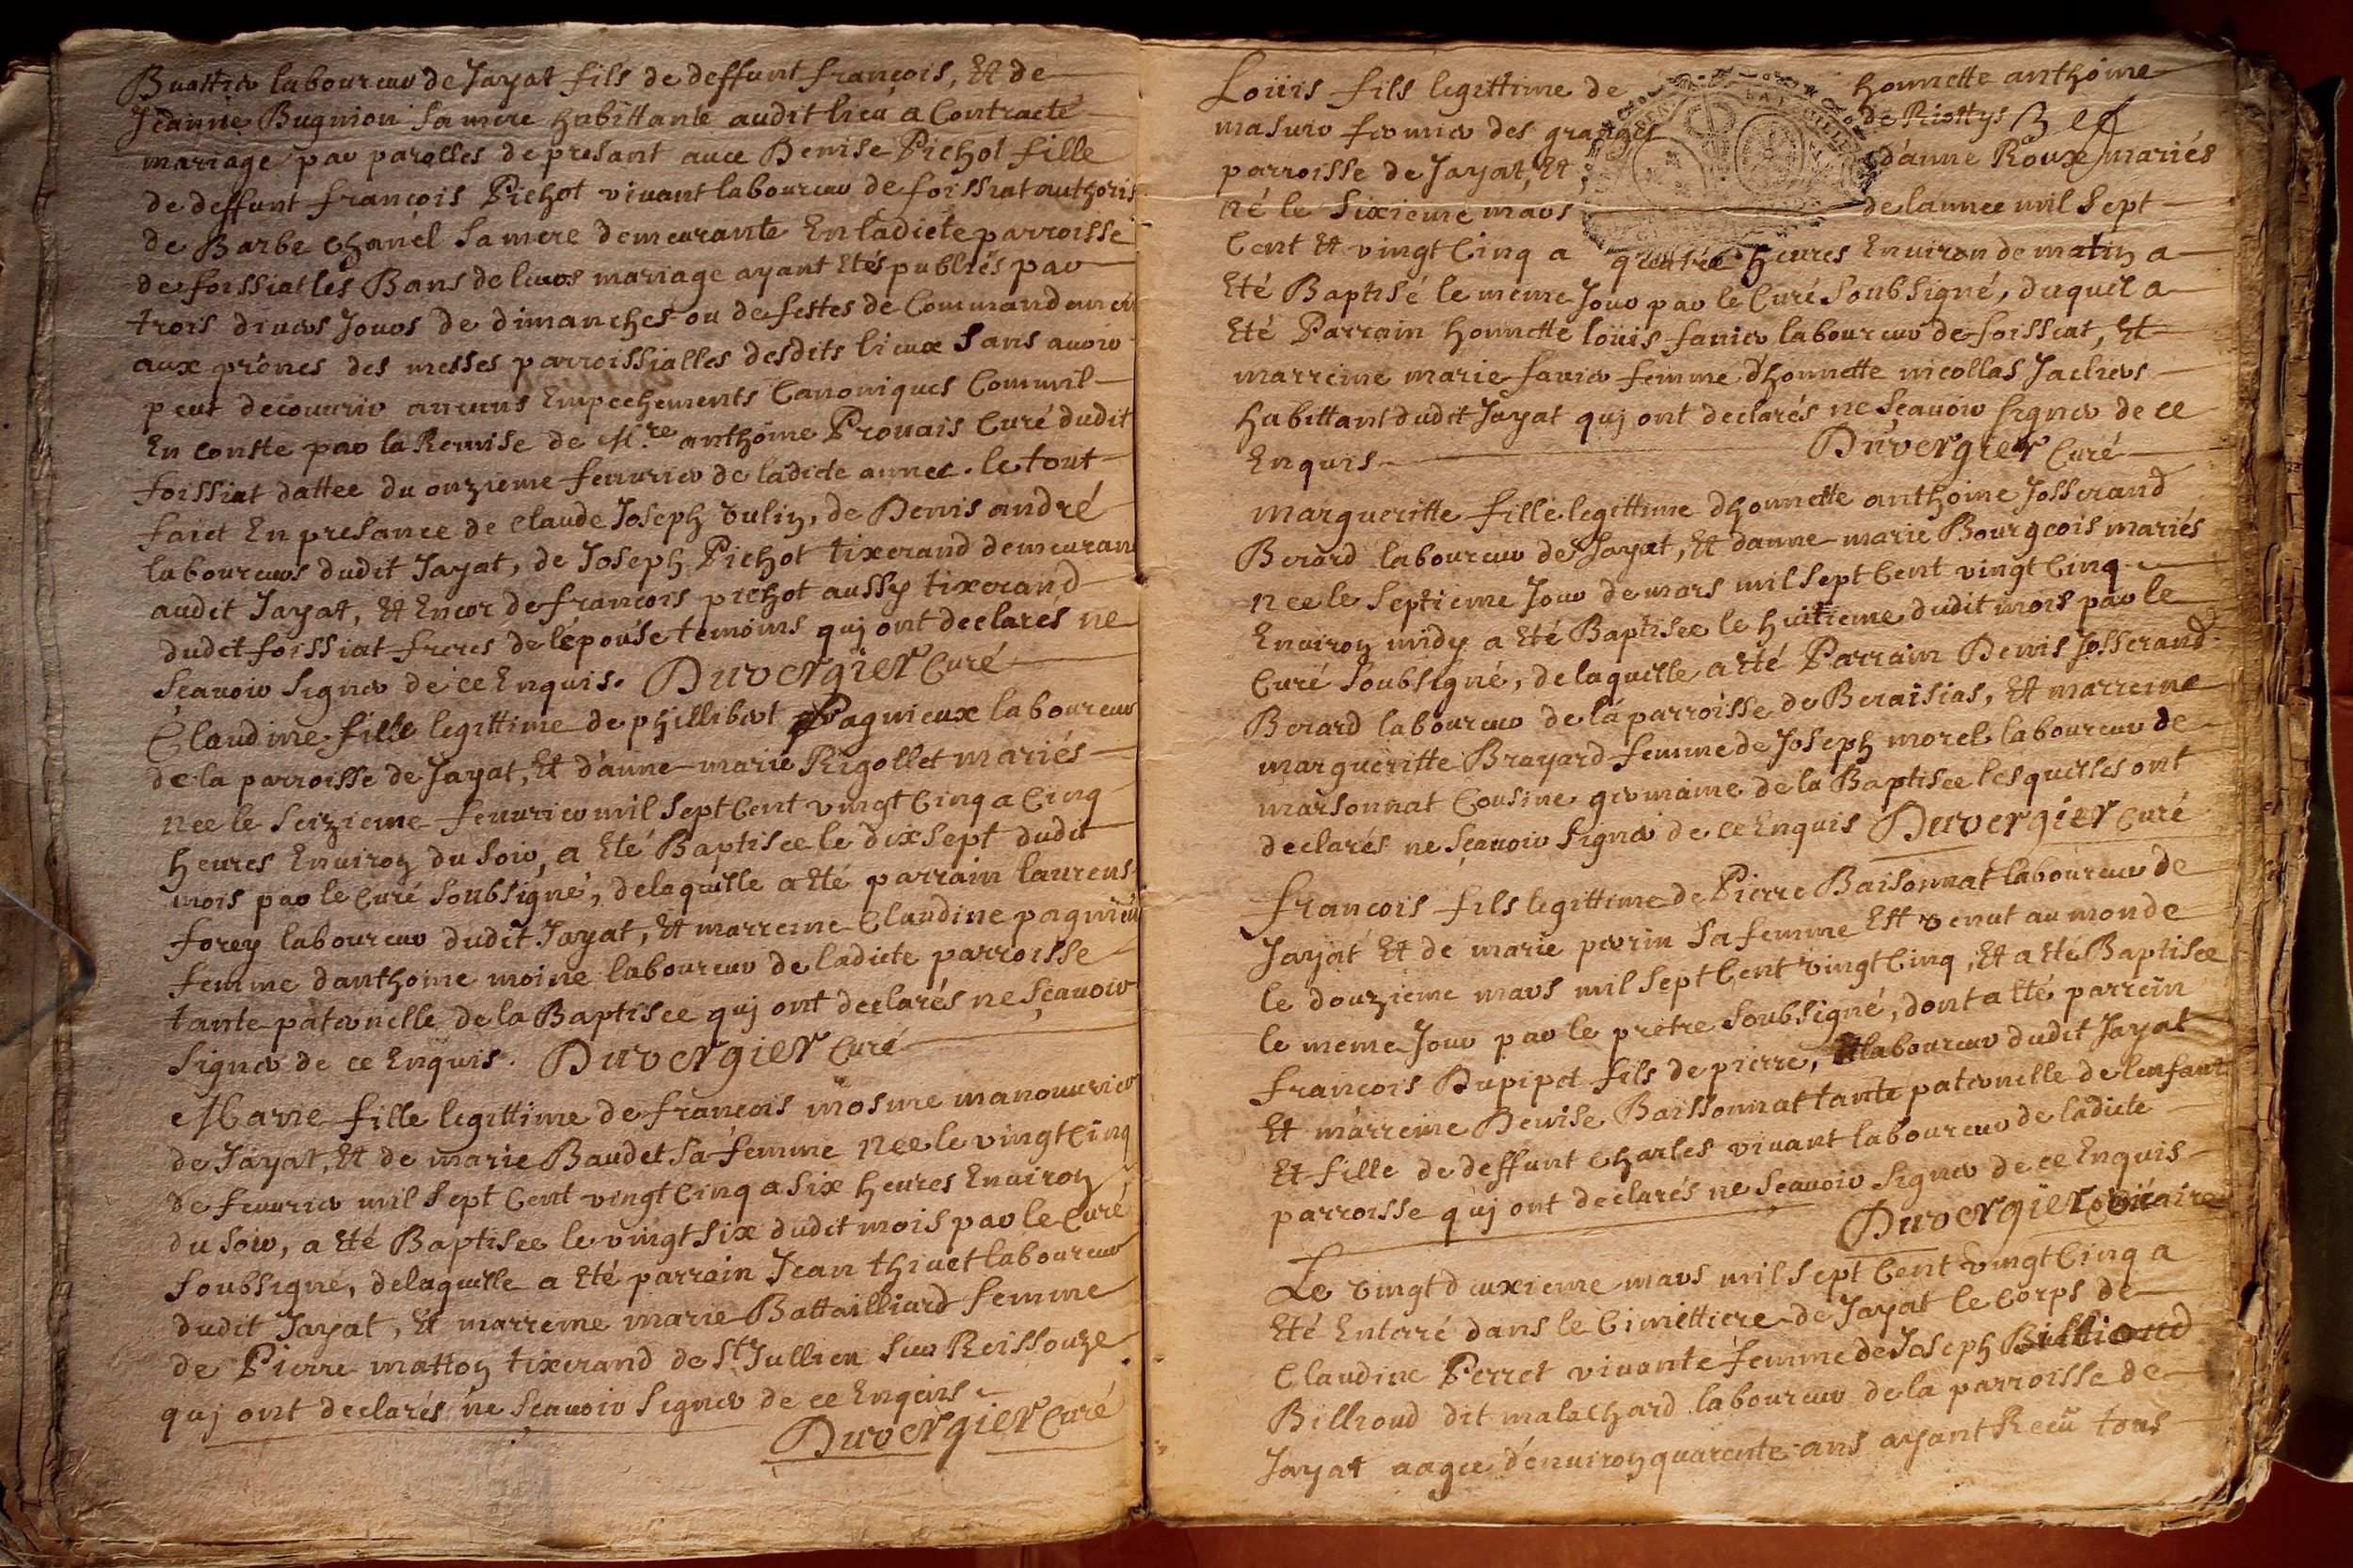 laboureur de Jayat fils de deffunt françois, Et de
Jeanne Bugnion sa mere habittante audit lieu a Contracté
mariage par parolles de presant avec Denise Pichot fille
de deffunt françois Pichot vivant laboureur de foissiat authoris
de Barbe chanel sa mere demeurante En ladicte parroisse
de foissiat les Bans de leurs mariage ayant Etés publiés par
trois divers Jours de dimanches ou de festes de Commandemen
aux prônes des messes parroissialles desdits lieux sans avoir
peut decouvrir aucuns Empechements Canoniques Comm'il
En conste par la Remise de M.re anthoine Provais Curé dudit
foissiat dattee du onzieme fevurier de ladicte annee. le tout
faict En presance de claude Joseph vulin, de Denis andré
laboureurs dudit Jayat, de Joseph Pichot tixerand demeuran
audit Jayat, Et Encor de francois pichot aussy tixerand
dudit foissiat freres de lépouse temoins quj ont declarés ne
sçavoir signer de ce Enquis. Duvergier Curé
Claudine fille legittime de phillibert Pagnieux laboureur
de la parroisse de Jayat, Et d'anne marie Rigollet mariés
nee le seizieme fevurier mil sept Cent vingt Cinq a Cinq
heures Environ du soir, a Eté Baptisee le dix sept dudit
mois par le Curé soubsigné, delaquelle a Eté parrain laurens
forey laboureur dudit Jayat, Et marreine Claudine pagnieu
femme danthoine moine laboureur de ladicte parroisse
tante paternelle de la Baptisee quj ont declarés ne sçavoir
signer de ce Enquis. Duvergier Curé
Marie fille legittime de francois mosme manouvrier
de Jayat, Et de marie Baudet sa femme nee le vingt Cinq
de fevurier mil sept Cent vingt Cinq a six heures Environ
du soir, a Eté Baptisee le vingt six dudit mois par le Curé
soubsigné, delaquelle a Eté parrain Jean thivet laboureur
dudit Jayat, Et marreine marie Battailliard femme
de Pierre matton tixerand de St Jullien sur Reissouze
quj ont declarés ne sçavoir signer de ce Enquis
Duvergier Curé
Loüis fils legittime de honnette anthoine
masuir fermier des granges de Riottys
parroisse de Jayat, Et d'anne Roux mariés
né le sixieme mars de lannee mil sept
Cent Et vingt Cinq a quattre heures Environ de matin a
Eté Baptisé le meme Jour par le Curé soubsigné, duquel a
Eté Parrain honnette loüis favier laboureur de foissiat, Et
marreine marie favier femme d'honnette nicollas Jacliers
habittant dudit Jayat quj ont declarés ne sçavoir signer de ce
Enquis Duvergier Curé
margueritte fille legittime dhonnette anthoine Josserand
Berard laboureur de Jayat, Et danne marie Bourgeois mariés
nee le septieme Jour de mars mil sept Cent vingt Cinq
Environ midy a Eté Baptisee le huitieme dudit mois par le
Curé soubsigné, delaquelle a Eté Parrain Denis Josserand
Berard laboureur de la parroisse de Beraisias, Et marreine
margueritte Brayard femme de Joseph morel laboureur de
marsonnat Cousine germaine de la Baptisee lesquelles ont
declarés ne sçavoir signer de ce Enquis Duvergier Curé
françois fils legittime de Pierre Baisonnat laboureur de
Jayat Et de marie perrin sa femme Est venut au monde
le douzieme mars mil sept Cent vingt Cinq, Et a Eté Baptisee
le meme Jour par le prétre soubsigné, dont a Eté parrein
francois Dupipet fils de pierre, laboureur dudit Jayat
Et marreine Denise Baissonnat tante paternelle de lenfant
Et fille de deffunt charles vivant laboureur de ladicte
parroisse quj ont declarés ne sçavoir signer de ce Enquis
Duvergier vicaire
Le vingt deuxieme mars mil sept Cent vingt Cinq a
Eté Enterré dans le Cimettiere de Jayat le corps de
Claudine Perret vivante femme de Joseph
Billioud dit malachard laboureur de la parroisse de
Jayat aagee d'environ quarente ans ayant Reçu tous